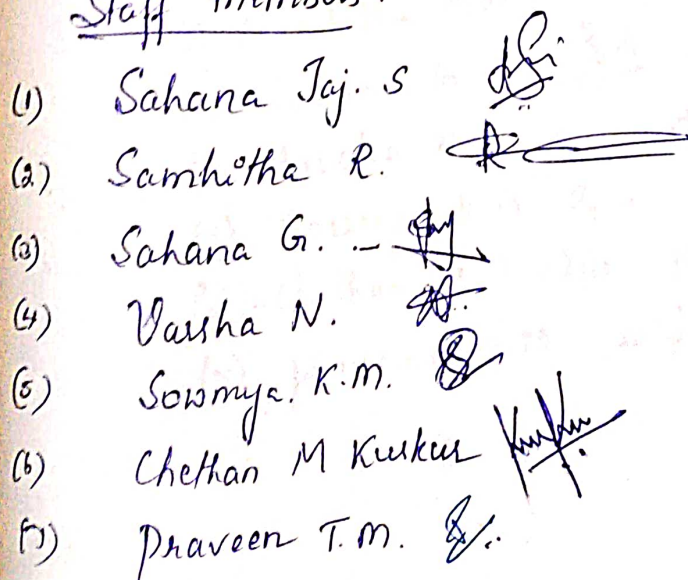 Staff members
(1) Sahana Taj. S
(2) Samhitha R.
(3) Sahana G. -
(4) Varsha N.
(5) Sowmya. K.M.
(6) Chethan M Kurkur
(7) Praveen T.M.